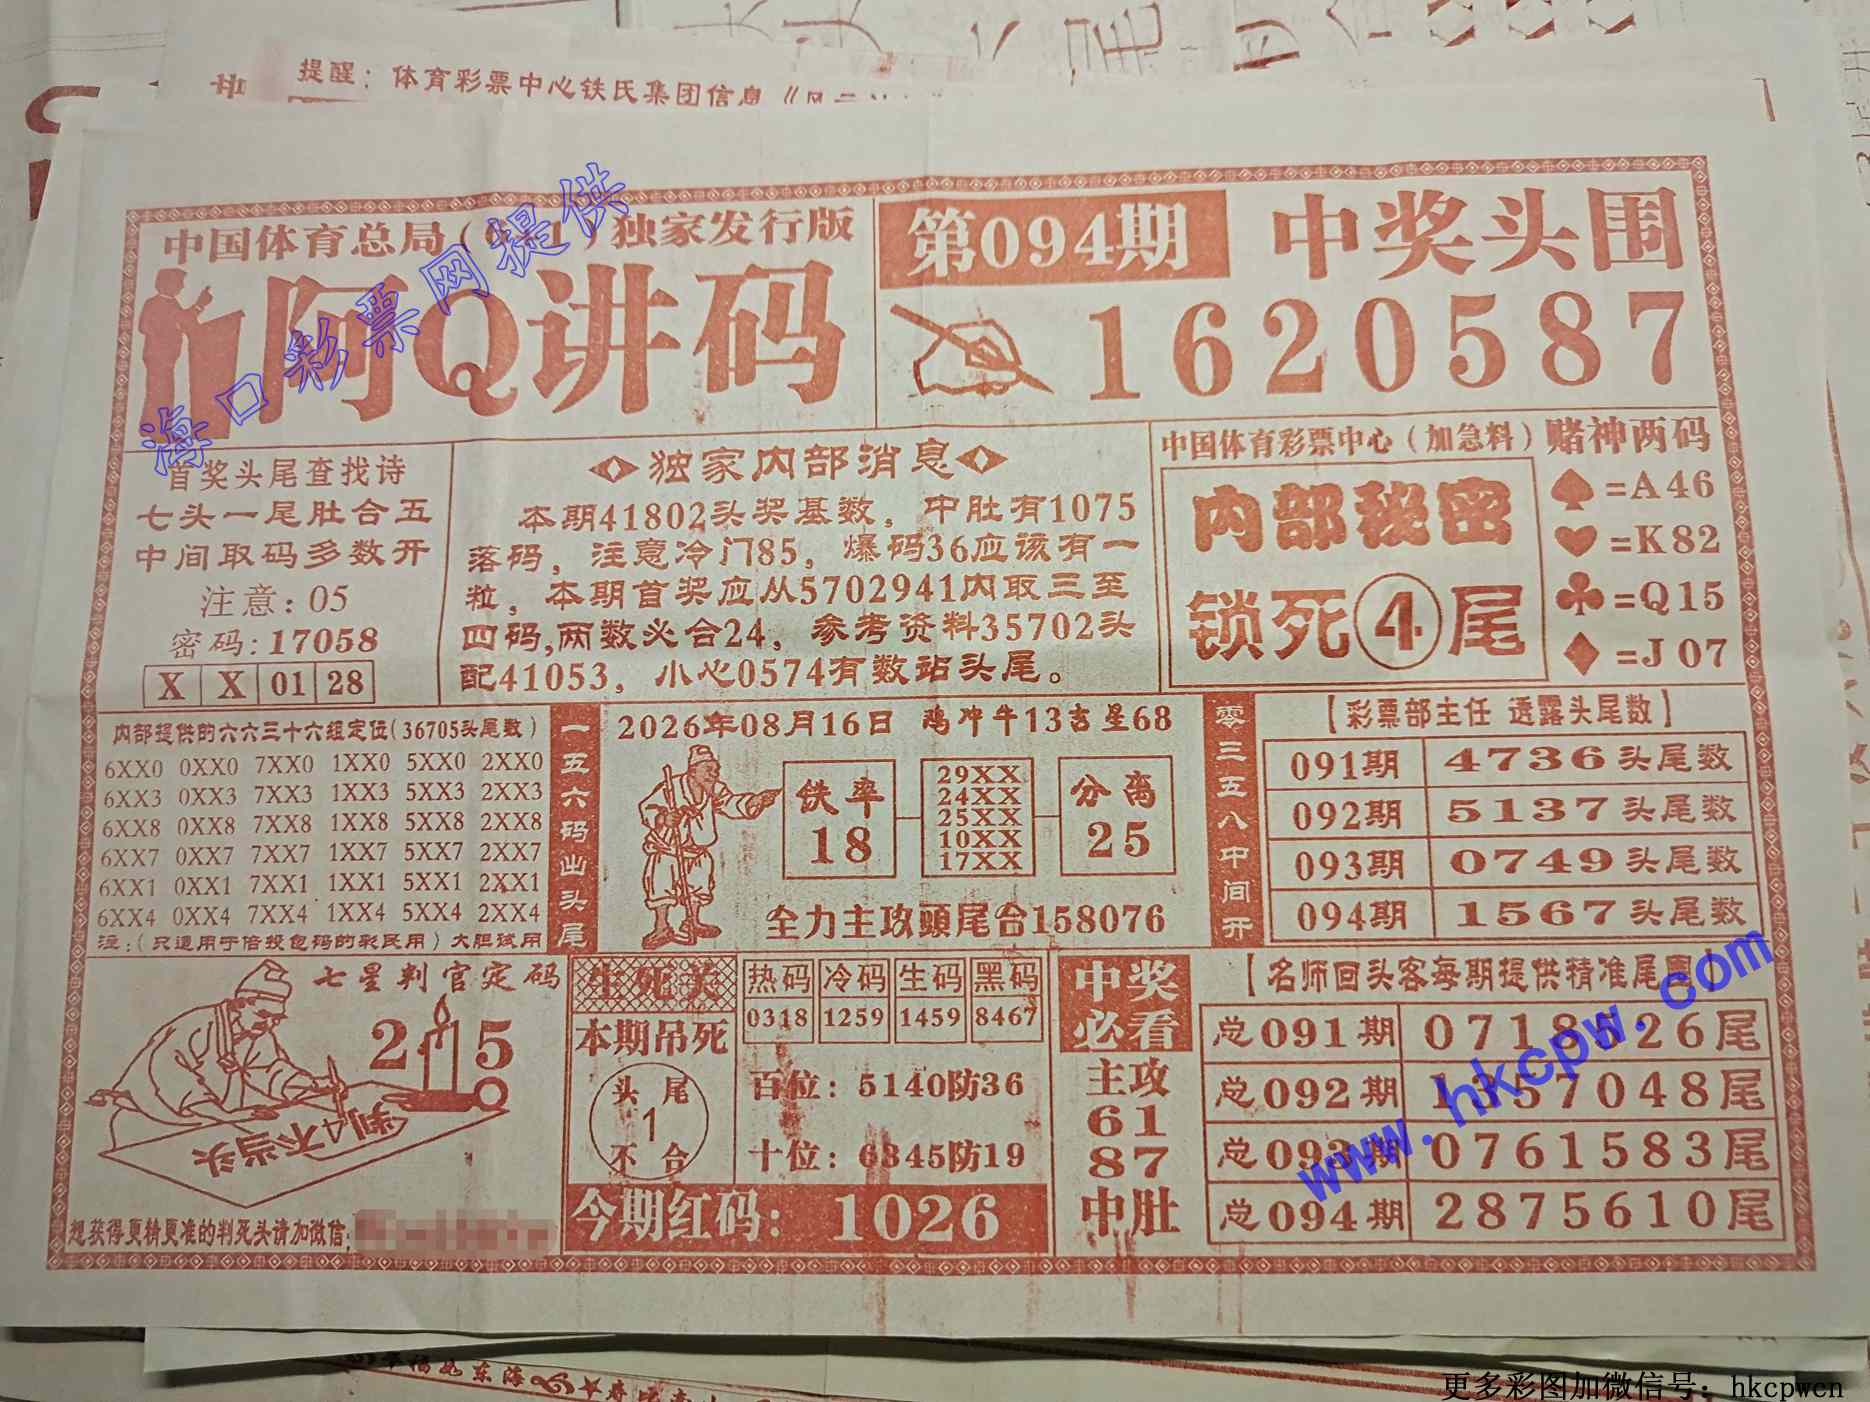 提醒：体育彩票中心铁氏集团信息《风
中国体育总局(0 1)独家发行版
阿Q讲码
第094期
中奖头围
1620587
首奖头尾查找诗
七头一尾肚合五
中间取码多数开
注意: 05
密码: 17058
X X 01 28
独家内部消息
本期41802头奖基数，中肚有1075
落码，注意冷门85，爆码36应该有一
粒，本期首奖应从5702941内取三至
四码,两数必合24，参考资料35702头
配41053，小心0574有数站头尾。
中国体育彩票中心（加急料）赌神两码
内部秘密
锁死④尾
♠=A46
♥=K82
♣=Q15
♦=J07
内部提供的六六三十六组定位(36705头尾数)
6XX0 0XX0 7XX0 1XX0 5XX0 2XX0
6XX3 0XX3 7XX3 1XX3 5XX3 2XX3
6XX8 0XX8 7XX8 1XX8 5XX8 2XX8
6XX7 0XX7 7XX7 1XX7 5XX7 2XX7
6XX1 0XX1 7XX1 1XX1 5XX1 2XX1
6XX4 0XX4 7XX4 1XX4 5XX4 2XX4
注:(只适用于倍投包码的彩民用)大胆试用
一五六码出头尾
2026年08月16日 鸡冲牛13吉星68
铁率
18
29XX
24XX
25XX
10XX
17XX
分离
25
全力主攻頭尾合158076
零三五八中间开
【彩票部主任 透露头尾数】
091期 4736头尾数
092期 5137头尾数
093期 0749头尾数
094期 1567头尾数
七星判官定码
2 5
判4不当头
想获得更精更准的判死头请加微信:
生死关
本期吊死
头 尾
1
不 合
热码 冷码 生码 黑码
0318 1259 1459 8467
百位: 5140防36
十位: 6845防19
今期红码: 1026
中奖
必看
主攻
61
87
中肚
【名师回头客每期提供精准尾围
总091期 0718526尾
总092期 1357048尾
总093期 0761583尾
总094期 2875610尾
海口彩票网提供
www.hkcpw.com
更多彩图加微信号：hkcpwcn